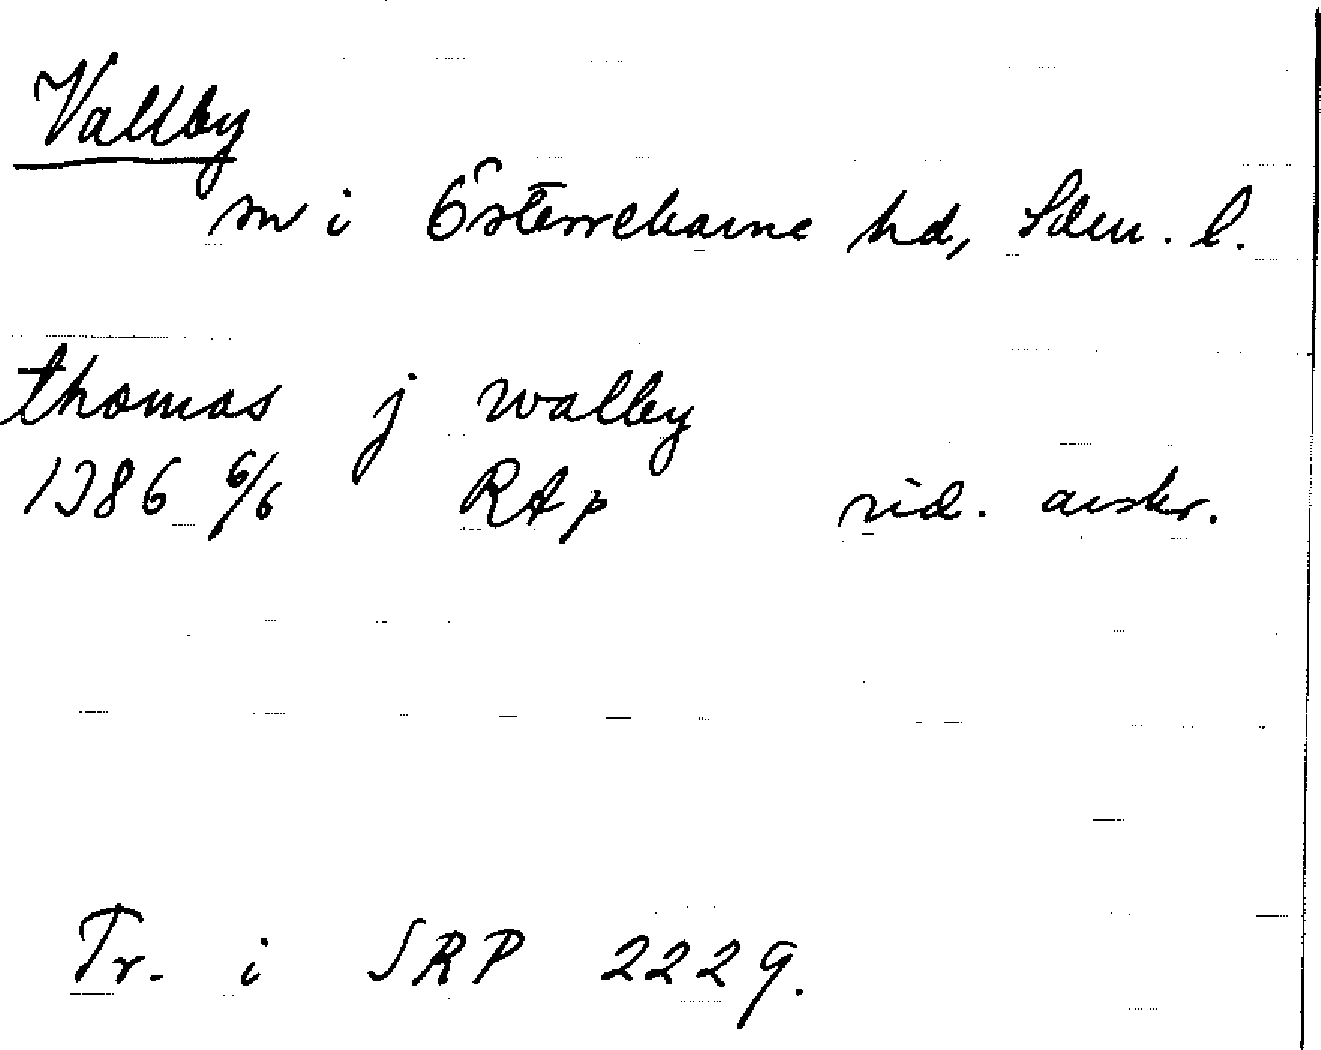 Vallby
sn i Österrekarne hd, Sdm. l.
thomas j walby
1386 6/6 RAp vid. avskr.
Tr. i SRP 2229.